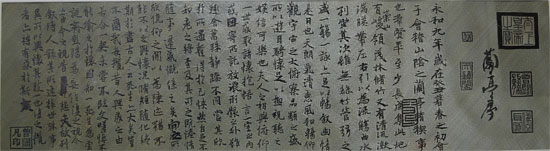 蘭亭序
永和九年歲在癸丑暮春之初會
于會稽山陰之蘭亭脩稧事
也群賢畢至少長咸集此地
有崇山峻領茂林脩竹又有清流激
湍映帶左右引以為流觴曲水
列坐其次雖無絲竹管弦之
盛一觴一詠亦足以暢敘幽情
是日也天朗氣清惠風和暢仰
觀宇宙之大俯察品類之盛
所以遊目騁懷足以極視聽之
娛信可樂也夫人之相與俯仰
一世或取諸懷抱悟言一室之內
或因寄所託放浪形骸之外雖
趣舍萬殊靜躁不同當其欣
於所遇暫得於己快然自足不
知老之將至及其所之既惓情
隨事遷感慨係之矣向之所欣
俛仰之間以為陳迹猶不
能不以之興懷況脩短隨化終
期於盡古人云死生亦大矣豈
不痛哉每攬昔人興感之由
若合一契未嘗不臨文嗟悼不
能喻之於懷固知一死生為虛
誕齊彭殤為妄作後之視今
亦由今之視昔悲夫故列
敘時人錄其所述雖世殊事
異所以興懷其致一也後之攬
者亦將有感於斯文